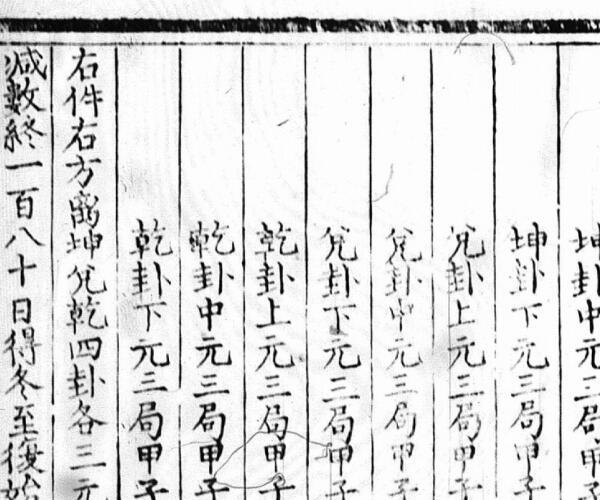 坤卦中元三局甲子
坤卦下元三局甲子
兌卦上元三局甲子
兌卦中元三局甲子
兌卦下元三局甲子
乾卦上元三局甲子
乾卦中元三局甲子
乾卦下元三局甲子
右件右方离坤兌乾四卦各三元
减數終一百八十日得冬至復始